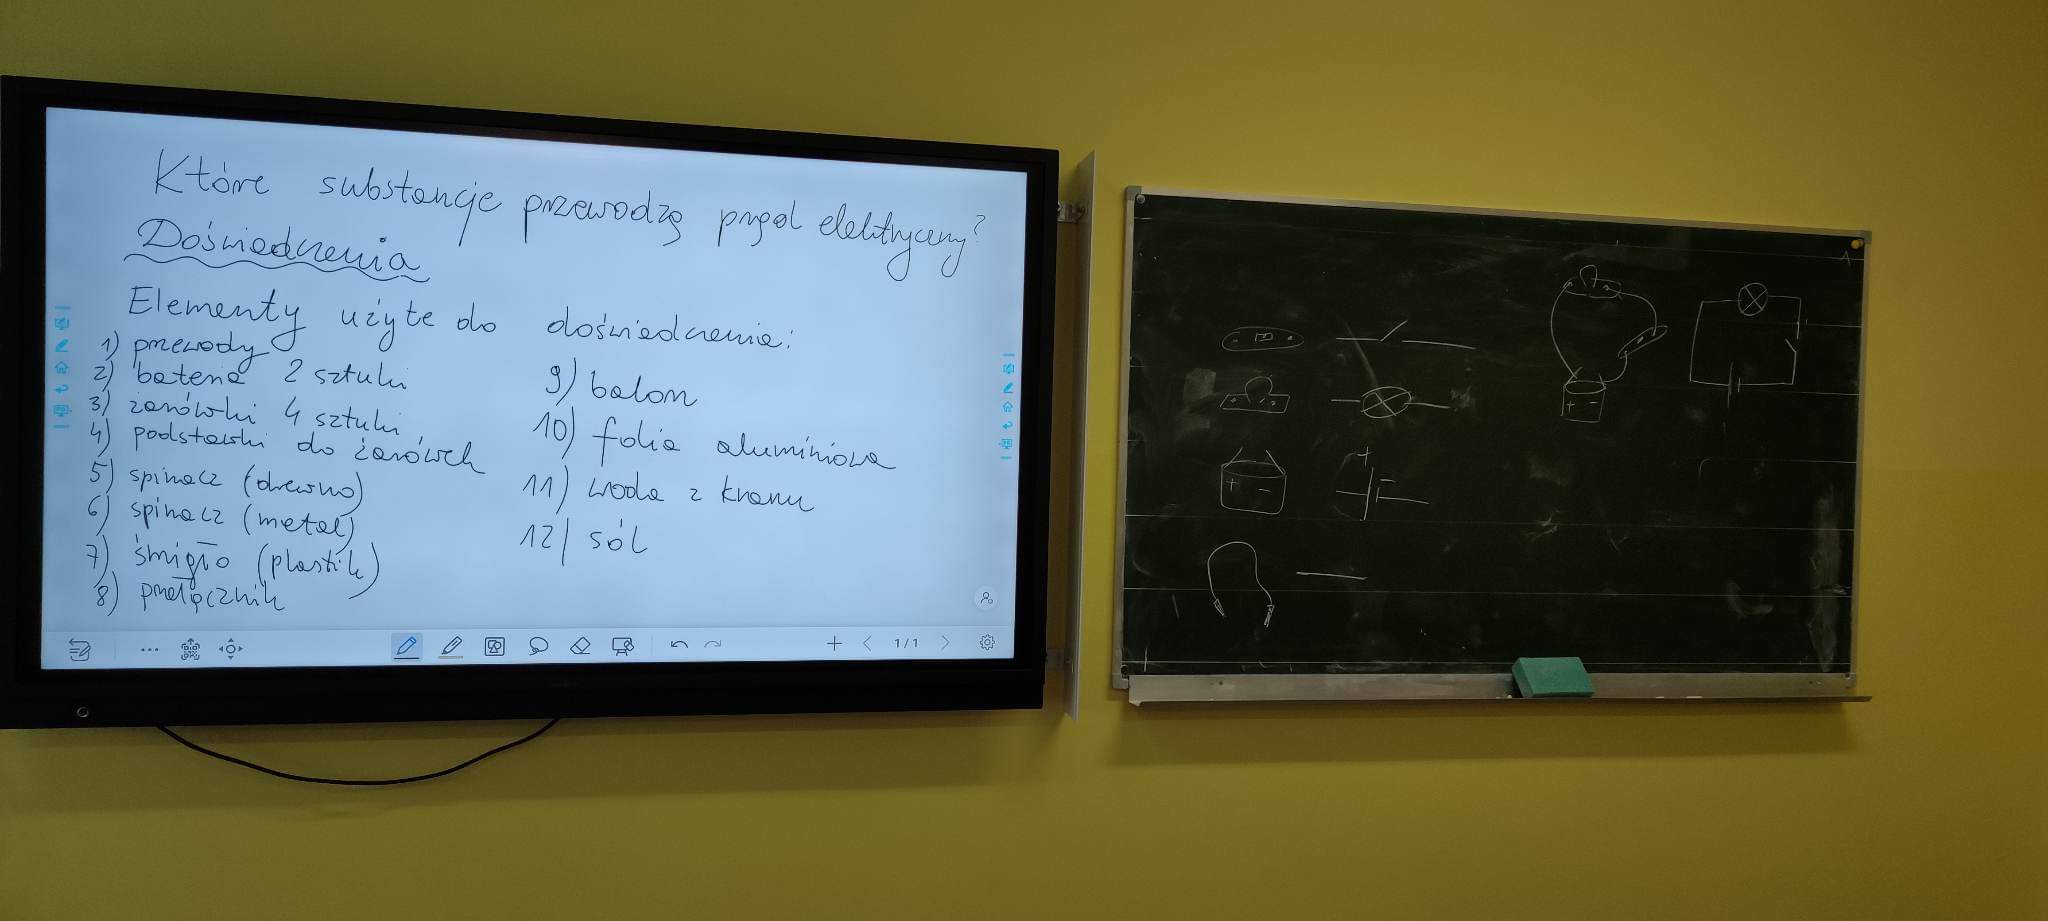 Które substancje przewodzą prąd elektryczny?
Doświadczenia
Elementy użyte do doświadczenia:
1) przewody
2) bateria 2 sztuki
3) żarówki 4 sztuki
4) podstawki do żarówek
5) spinacz (drewno)
6) spinacz (metal)
7) śmigło (plastik)
8) przełącznik
9) balon
10) folia aluminiowa
11) woda z kranu
12) sól
1/1
+ -
+ -
+ -